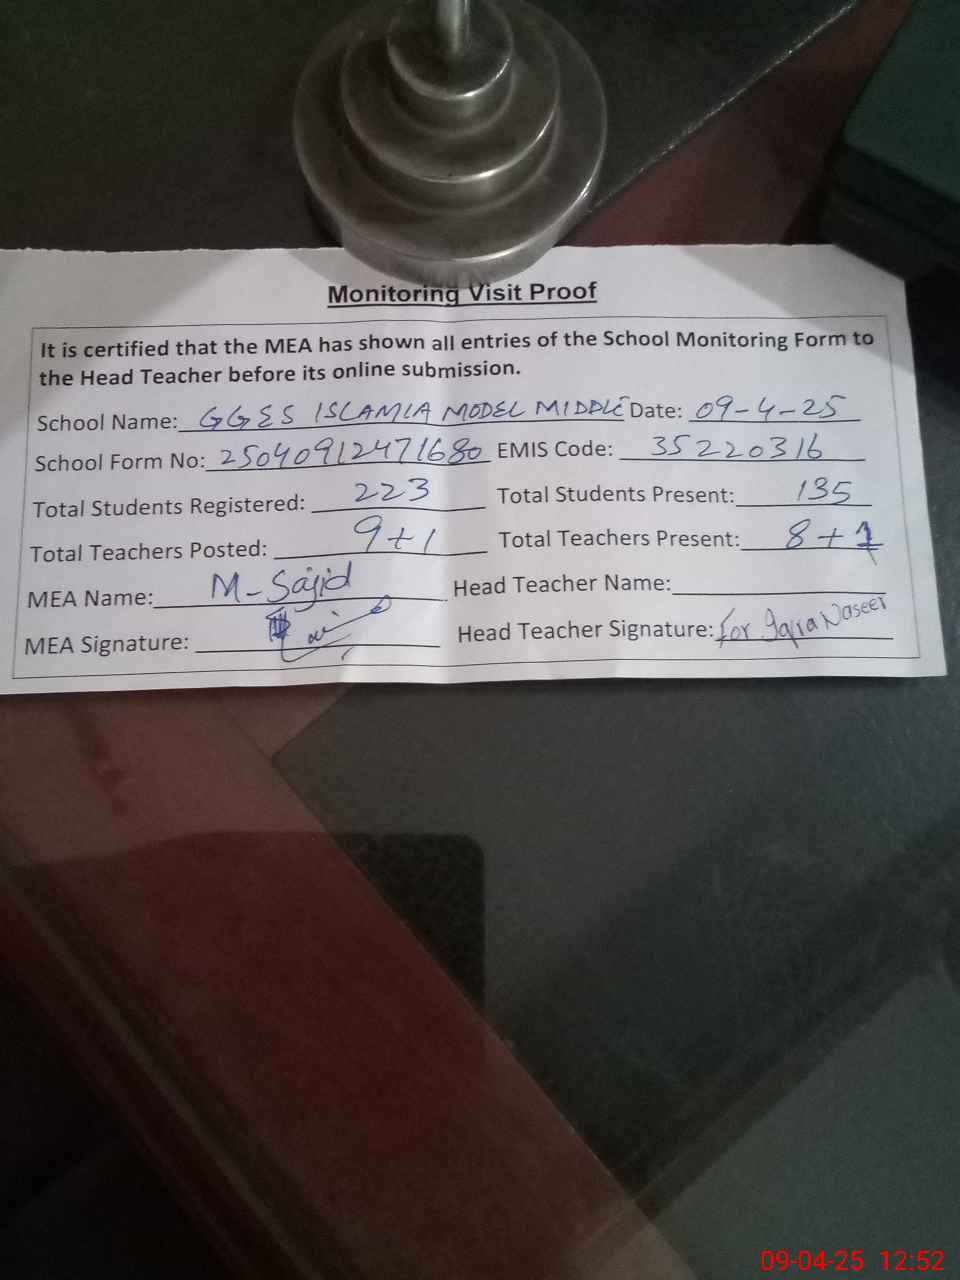 Monitoring Visit Proof
It is certified that the MEA has shown all entries of the School Monitoring Form to
the Head Teacher before its online submission.
School Name: GGES ISLAMIA MODEL MIDDLE Date: 09-4-25
School Form No: 25040912471680 EMIS Code: 35220316
Total Students Registered: 223 Total Students Present: 135
Total Teachers Posted: 9+1 Total Teachers Present: 8+1
MEA Name: M-Sajid Head Teacher Name:
MEA Signature: Head Teacher Signature: for Iqra Naseer
09-04-25 12:52